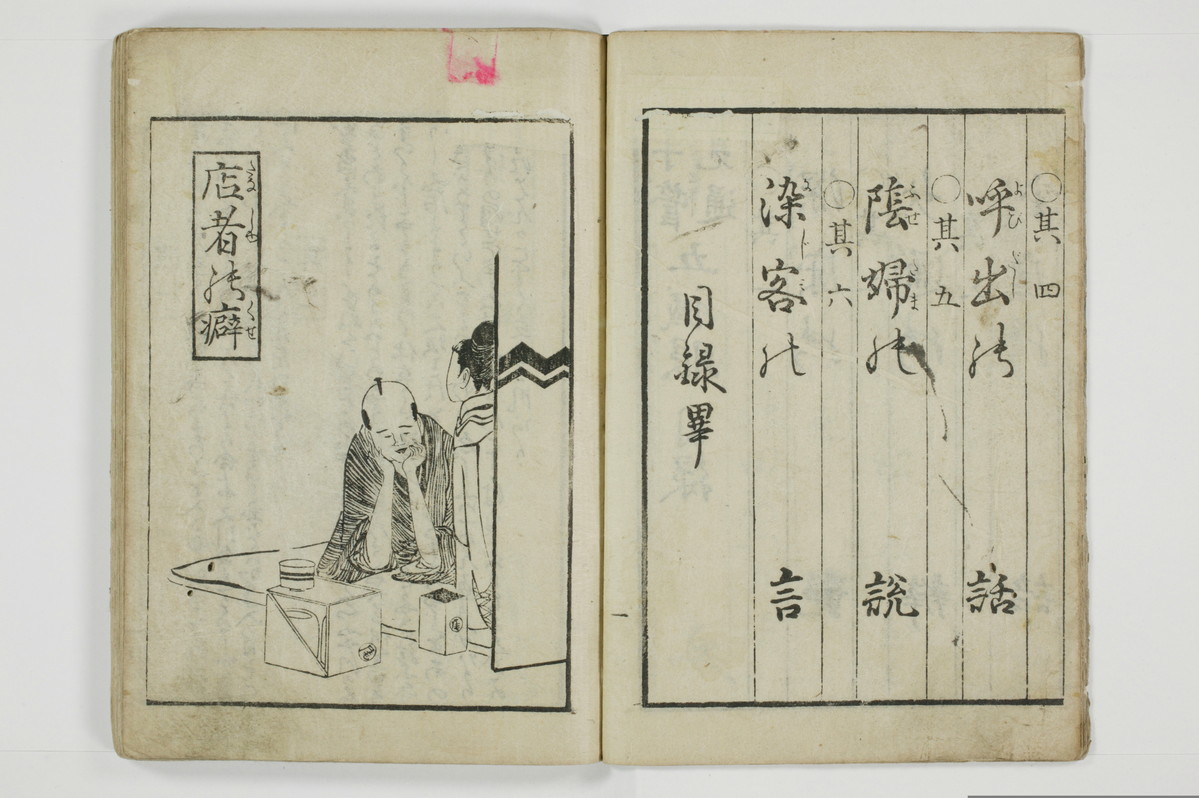 ○其四
呼出的話
○其五
陰婦的説
○其六
染客的言
目録畢
店者的癖